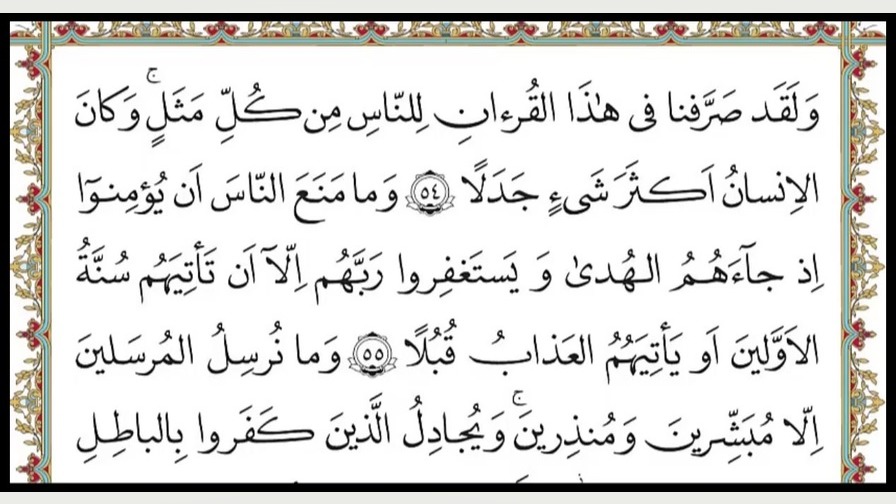 وَلَقَد صَرَّفنا فى هٰذَا القُرءانِ لِلنّاسِ مِن كُلِّ مَثَلٍ ۚ وَكانَ
الاِنسانُ اَكثَرَ شَىءٍ جَدَلًا ﴿٥٤﴾ وَما مَنَعَ النّاسَ اَن يُؤمِنوٓا
اِذ جآءَهُمُ الهُدىٰ وَ يَستَغفِروا رَبَّهُم اِلّآ اَن تَأتِيَهُم سُنَّةُ
الاَوَّلينَ اَو يَأتِيَهُمُ العَذابُ قُبُلًا ﴿٥٥﴾ وَما نُرسِلُ المُرسَلينَ
اِلّا مُبَشِّرينَ وَمُنذِرينَ ۚ وَيُجادِلُ الَّذينَ كَفَروا بِالباطِلِ